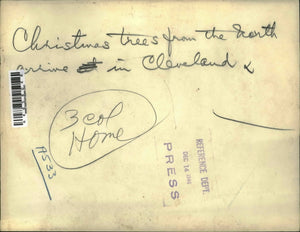 Christmas trees from the North
arrive in Cleveland x
3 col
Home
A533
REFERENCE DEPT.
DEC 14
PRESS